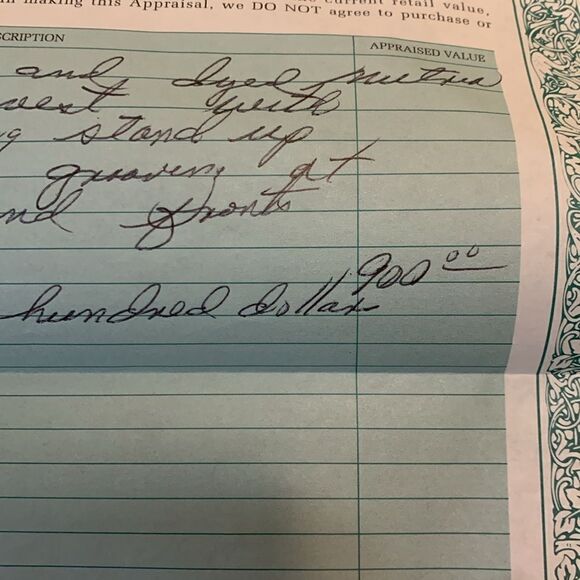 current retail value,
in making this Appraisal, we DO NOT agree to purchase or
SCRIPTION
APPRAISED VALUE
and dyed nutria
vest with
g stand up
grooving at
nd fronts
900.00
hundred dollars